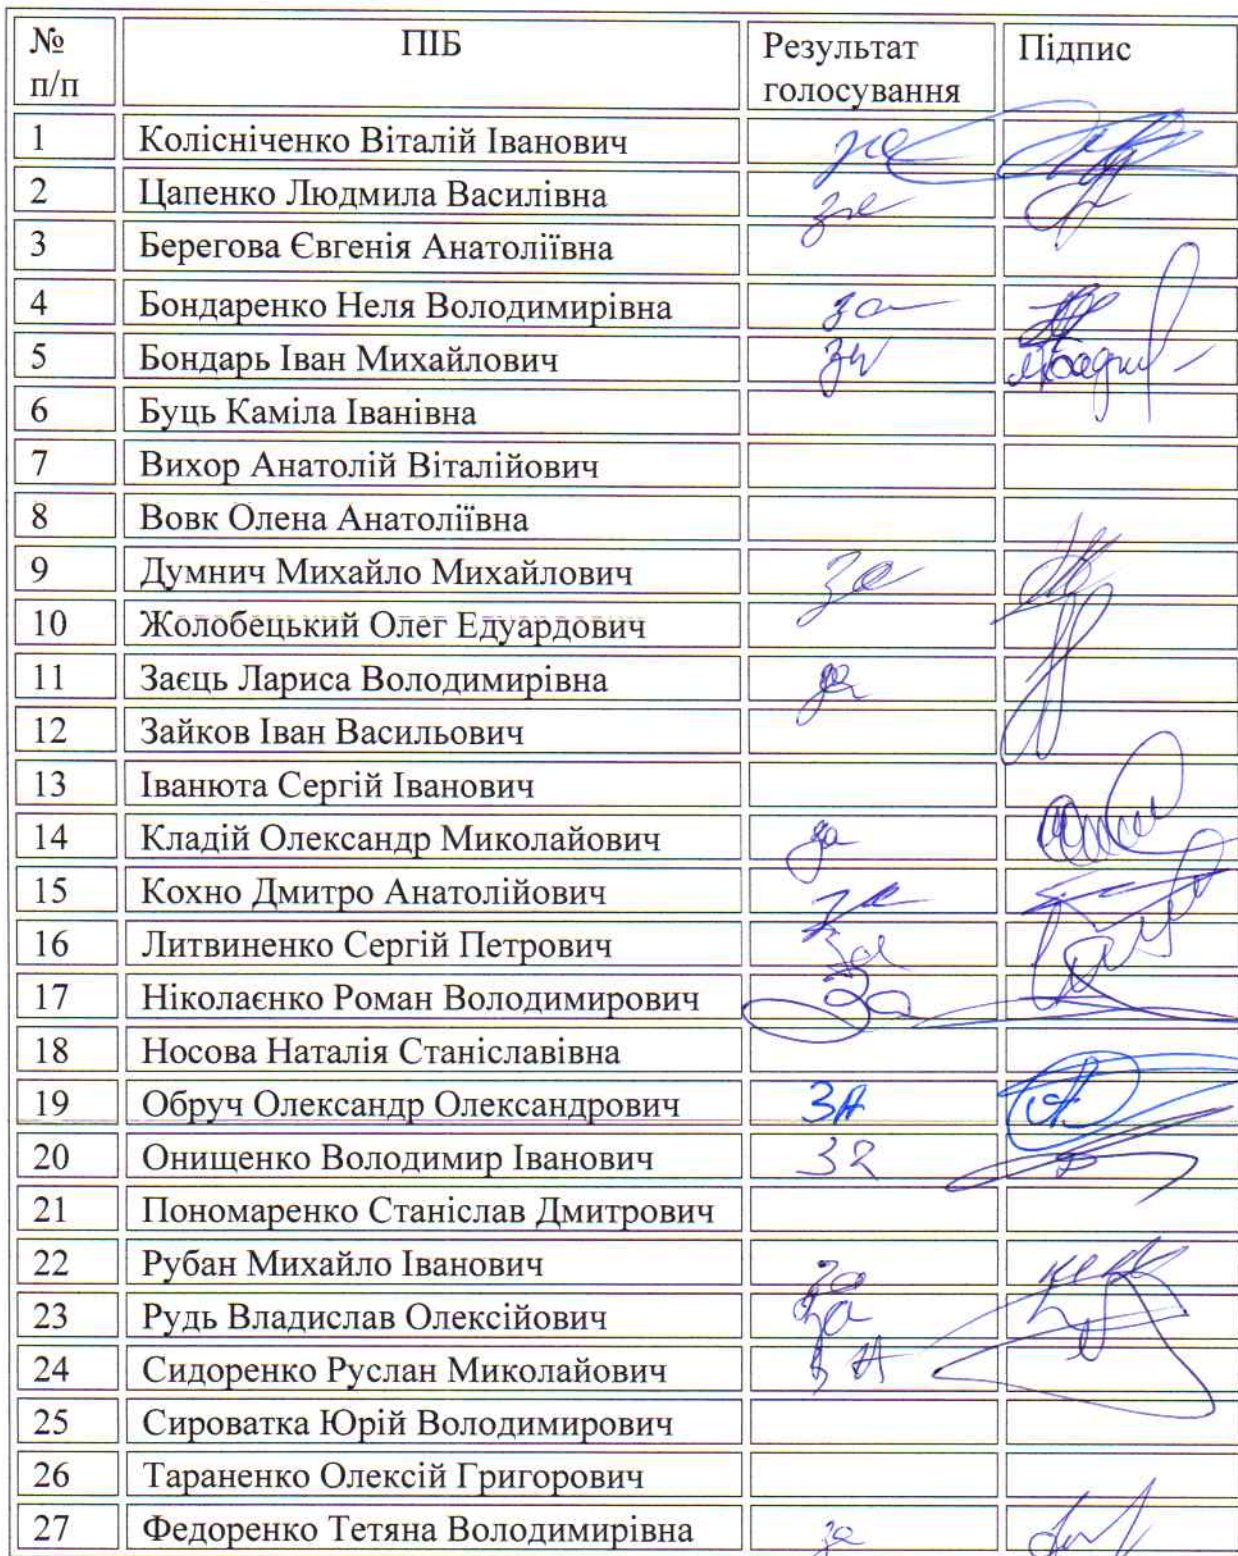 № п/п ПІБ Результат голосування Підпис
1 Колісніченко Віталій Іванович за
2 Цапенко Людмила Василівна за
3 Берегова Євгенія Анатоліївна
4 Бондаренко Неля Володимирівна за
5 Бондарь Іван Михайлович за
6 Буць Каміла Іванівна
7 Вихор Анатолій Віталійович
8 Вовк Олена Анатоліївна
9 Думнич Михайло Михайлович за
10 Жолобецький Олег Едуардович
11 Заєць Лариса Володимирівна за
12 Зайков Іван Васильович
13 Іванюта Сергій Іванович
14 Кладій Олександр Миколайович за
15 Кохно Дмитро Анатолійович за
16 Литвиненко Сергій Петрович за
17 Ніколаєнко Роман Володимирович За
18 Носова Наталія Станіславівна
19 Обруч Олександр Олександрович ЗА
20 Онищенко Володимир Іванович за
21 Пономаренко Станіслав Дмитрович
22 Рубан Михайло Іванович за
23 Рудь Владислав Олексійович за
24 Сидоренко Руслан Миколайович ЗА
25 Сироватка Юрій Володимирович
26 Тараненко Олексій Григорович
27 Федоренко Тетяна Володимирівна за